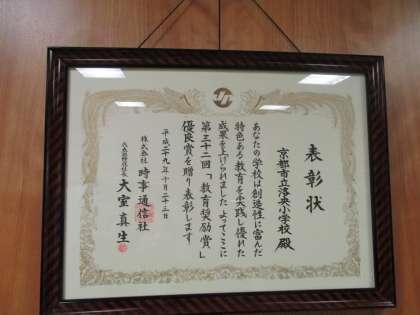 表彰状
京都市立洛央小学校 殿
あなたの学校は創造性に富んだ
特色ある教育を実践し優れた
成果を上げられました よってここに
第三十二回「教育奨励賞」
優良賞を贈り表彰します
平成二十九年十月二十三日
株式会社 時事通信社
代表取締役社長 大室真生